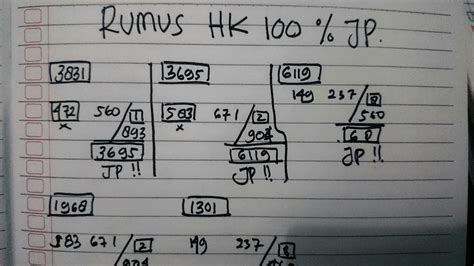 RUMUS HK 100 % JP.
3831 3695 6119
472 560 / 1 583 671 / 2 149 237 / 8
x 893 x 904 560
3695 6119 68
JP !! JP !! JP !!
1968 1301
583 671 / 2 149 237 / 8
904